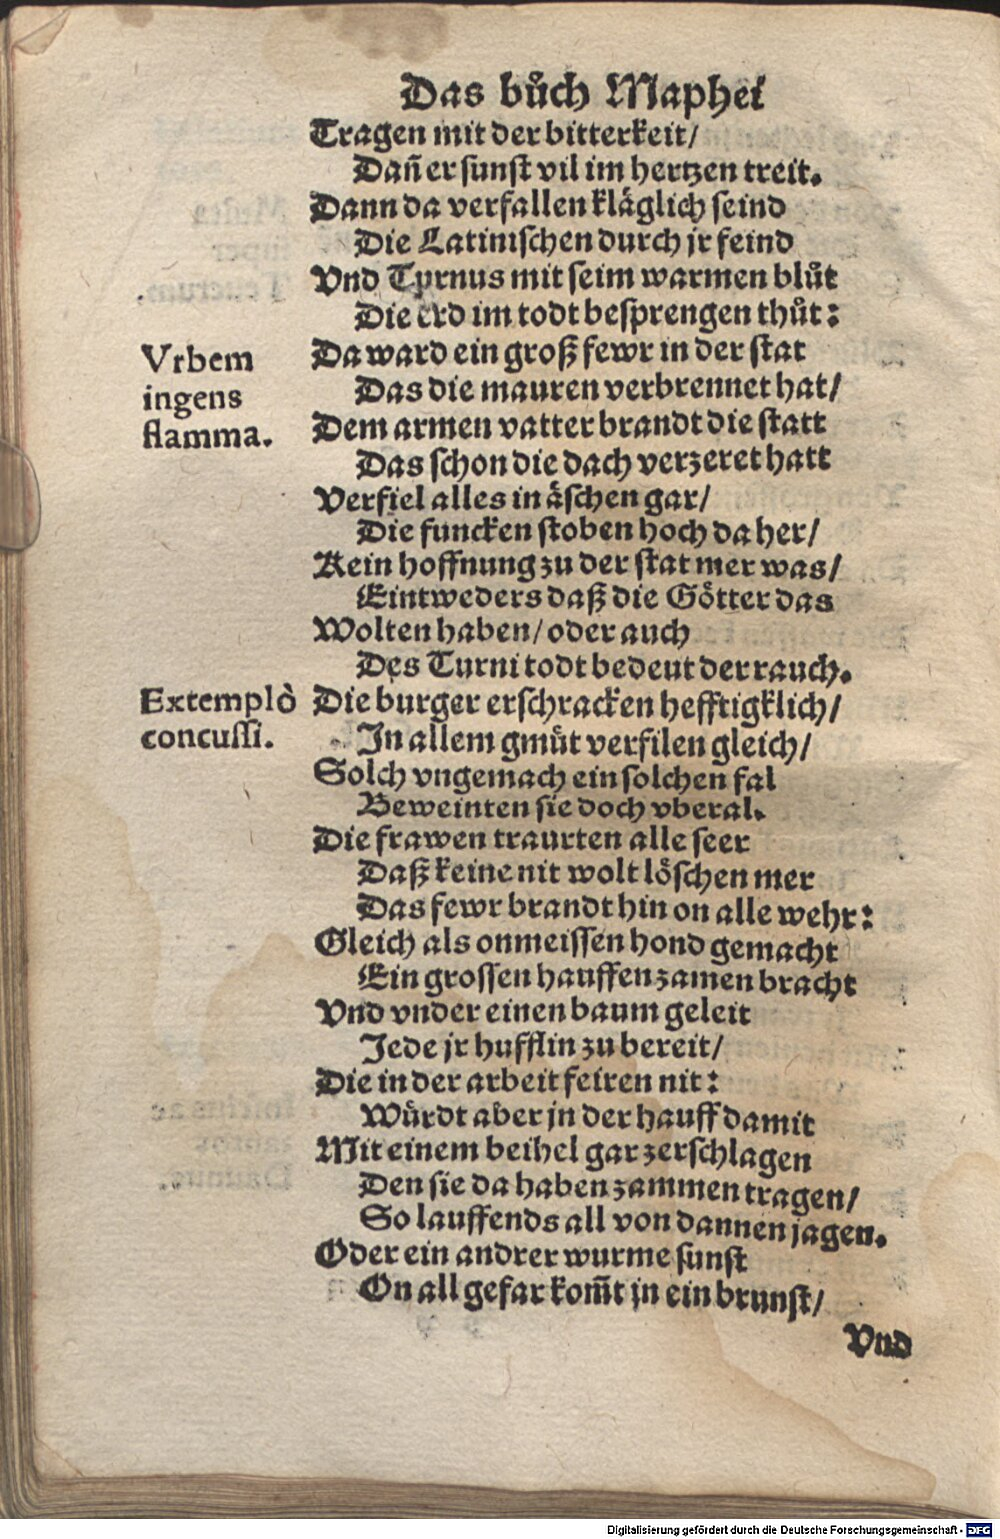 Das bůch Maphei
Tragen mit der bitterkeit/
Dañ er sunst vil im hertzen treit.
Dann da verfallen kläglich seind
Die Latinischen durch jr feind
Vnd Tyrnus mit seim warmen blůt
Die erd im todt besprengen thůt:
Vrbem
ingens
flamma.
Da ward ein groß fewr in der stat
Das die mauren verbrennet hat/
Dem armen vatter brandt die statt
Das schon die dach verzeret hatt
Verfiel alles in äschen gar/
Die funcken stoben hoch da her/
Kein hoffnung zu der stat mer was/
Eintweders daß die Götter das
Wolten haben/ oder auch
Des Turni todt bedeut der rauch.
Extemplò
concussi.
Die burger erschracken hefftigklich/
In allem gmůt verfilen gleich/
Solch vngemach ein solchen fal
Beweinten sie doch vberal.
Die frawen traurten alle seer
Daß keine nit wolt löschen mer
Das fewr brandt hin on alle wehr:
Gleich als onmeissen hond gemacht
Ein grossen hauffen zamen bracht
Vnd vnder einen baum geleit
Jede jr hufflin zu bereit/
Die in der arbeit feiren nit:
Würdt aber jn der hauff damit
Mit einem beihel gar zerschlagen
Den sie da haben zammen tragen/
So lauffends all von dannen jagen.
Oder ein andrer wurme sunst
On all gefar kom̃t jn ein brunst/
Vnd
Digitalisierung gefördert durch die Deutsche Forschungsgemeinschaft - DFG